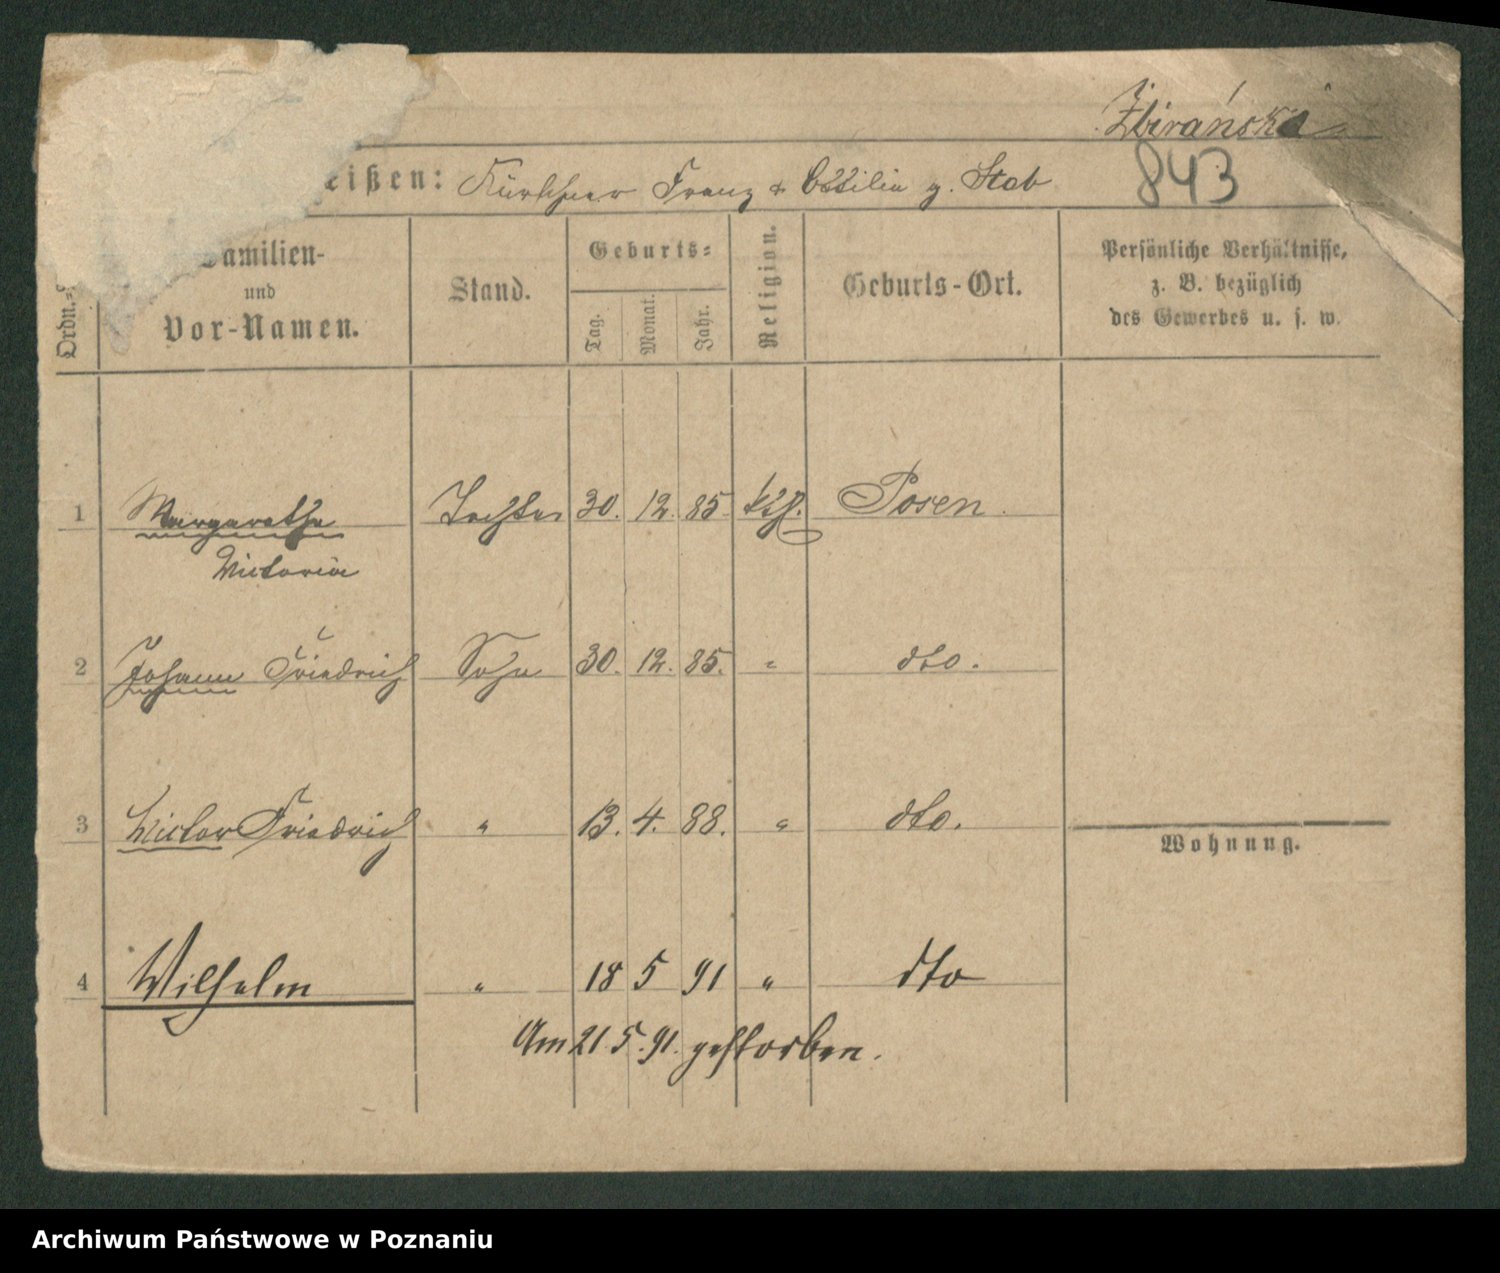 Żbirański
843
eißen: Kürschner Franz & Ottilie g. Stab
Ordn.=
Familien-
und
Vor-Namen.
Stand.
Geburts=
Tag.
Monat.
Jahr.
Religion.
Geburts-Ort.
Persönliche Verhältnisse,
z. B. bezüglich
des Gewerbes u. s. w.
1 Margarethe Tochter 30. 12. 85 kth. Posen.
Victoria
2 Johann Friedrich Sohn 30. 12. 85. " dto.
3 Victor Friedrich " 13. 4. 88. " dto.
Wohnung.
4 Wilhelm " 18 5 91 " dto
Am 21.5.91. gestorben.
Archiwum Państwowe w Poznaniu